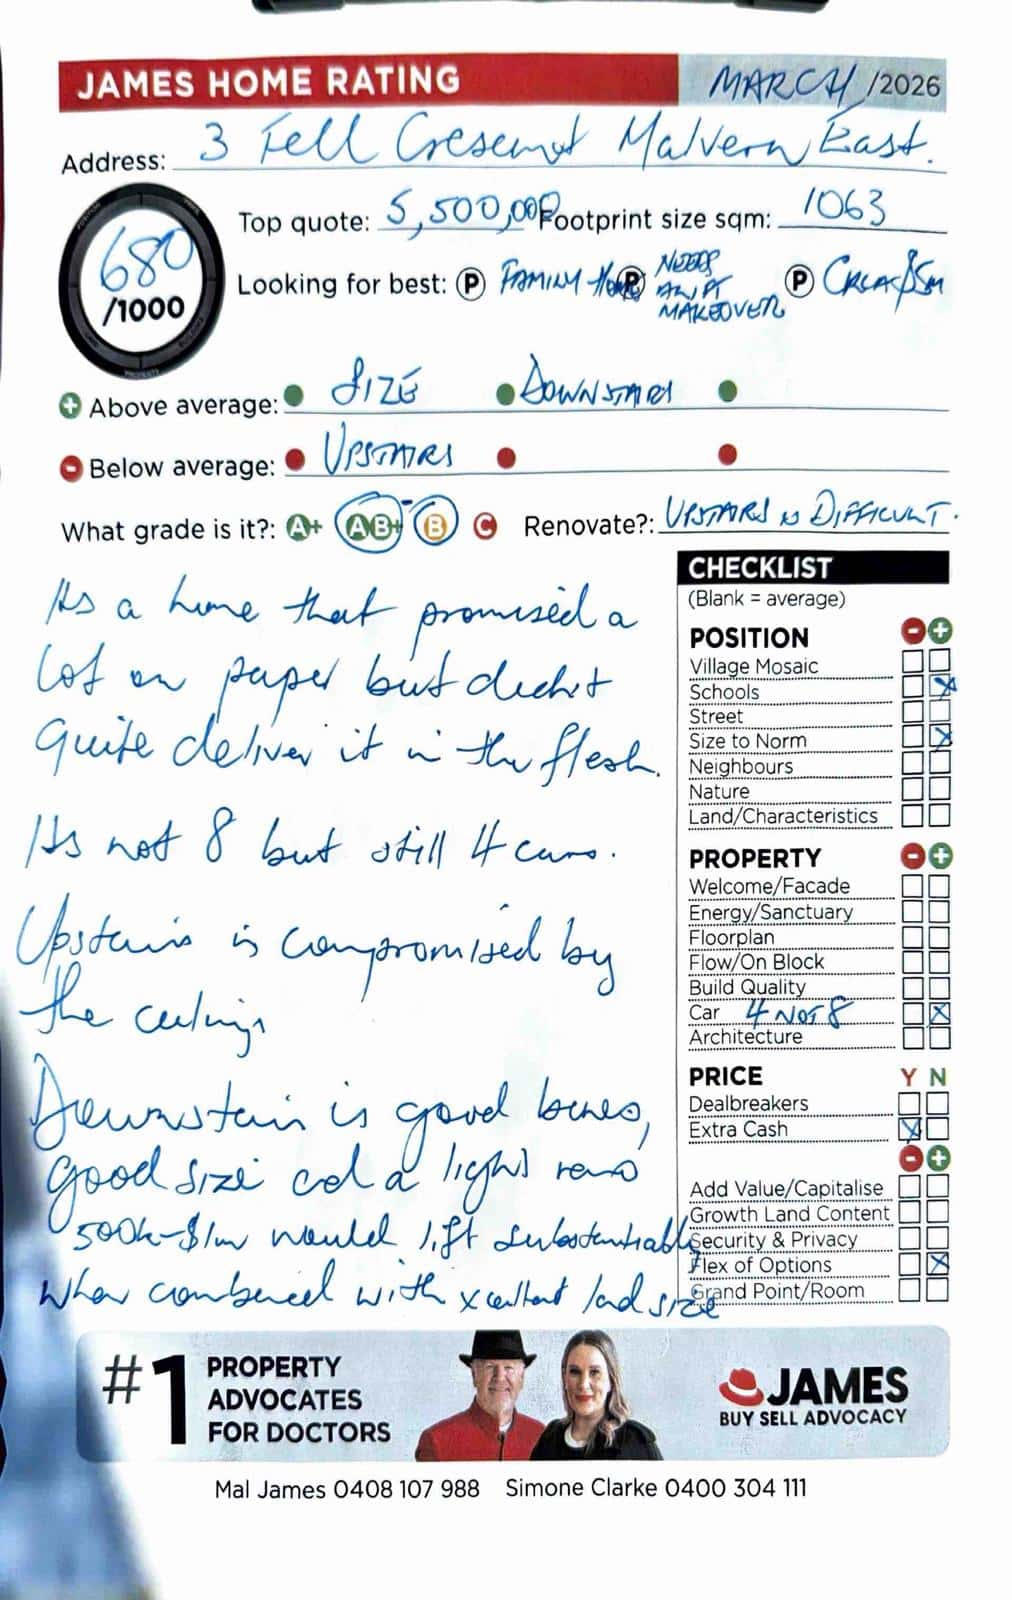 JAMES HOME RATING MARCH /2026
Address: 3 Fell Cresent Malvern East.
680
/1000
Top quote: 5,500,000 Footprint size sqm: 1063
Looking for best: P FAMILY HOME P NEEDS P
MAKEOVER
Above average: SIZE DOWNSTAIRS
Below average: UPSTAIRS
What grade is it?: A+ A B+ B C Renovate?: UPSTAIRS IS DIFFICULT.
Its a home that promised a
lot on paper but didnt
quite deliver it in the flesh.
Its not 8 but still 4 cars.
Upstairs is compromised by
the ceilings
Downstairs is good bones,
good size and a light reno
500k-$1m would lift substantially
when combined with xcellent land size
CHECKLIST
(Blank = average)
POSITION - +
Village Mosaic
Schools
Street
Size to Norm
Neighbours
Nature
Land/Characteristics
PROPERTY - +
Welcome/Facade
Energy/Sanctuary
Floorplan
Flow/On Block
Build Quality
Car 4 NOT 8
Architecture
PRICE Y N
Dealbreakers
Extra Cash
- +
Add Value/Capitalise
Growth Land Content
Security & Privacy
Flex of Options
Grand Point/Room
#1 PROPERTY
ADVOCATES
FOR DOCTORS
JAMES
BUY SELL ADVOCACY
Mal James 0408 107 988 Simone Clarke 0400 304 111